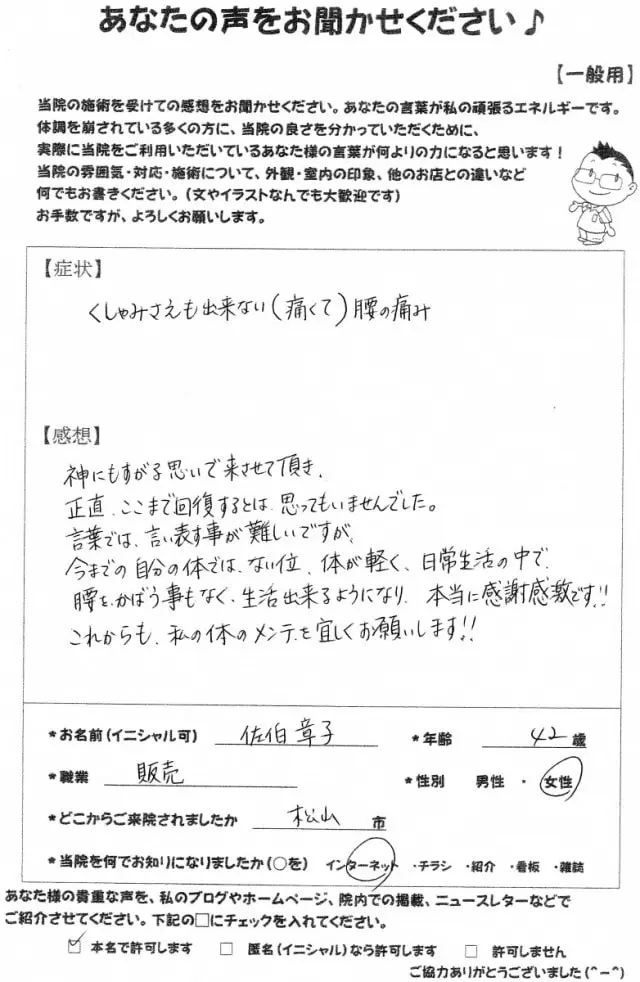 あなたの声をお聞かせください♪
【一般用】
当院の施術を受けての感想をお聞かせください。あなたの言葉が私の頑張るエネルギーです。
体調を崩されている多くの方に、当院の良さを分かっていただくために、
実際に当院をご利用いただいているあなた様の言葉が何よりの力になると思います！
当院の雰囲気・対応・施術について、外観・室内の印象、他のお店との違いなど
何でもお書きください。（文やイラストなんでも大歓迎です）
お手数ですが、よろしくお願いします。
【症状】
くしゃみさえも出来ない（痛くて）腰の痛み
【感想】
神にもすがる思いで来させて頂き、
正直、ここまで回復するとは、思ってもいませんでした。
言葉では、言い表す事が難しいですが、
今までの自分の体では、ない位、体が軽く、日常生活の中で、
腰を、かばう事もなく、生活出来るようになり、本当に感謝感激です!!
これからも、私の体のメンテを宜しくお願いします!!
*お名前（イニシャル可） 佐伯章子 *年齢 42歳
*職業 販売 *性別 男性 ・ 女性
*どこからご来院されましたか 松山 市
*当院を何でお知りになりましたか（○を） インターネット ・チラシ ・紹介 ・看板 ・雑誌
あなた様の貴重な声を、私のブログやホームページ、院内での掲載、ニュースレターなどで
ご紹介させてください。下記の□にチェックを入れてください。
☑ 本名で許可します □ 匿名（イニシャル）なら許可します □ 許可しません
ご協力ありがとうございました(^-^)